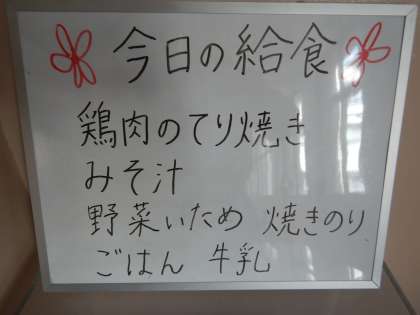 今日の給食
鶏肉のてり焼き
みそ汁
野菜いため 焼きのり
ごはん 牛乳